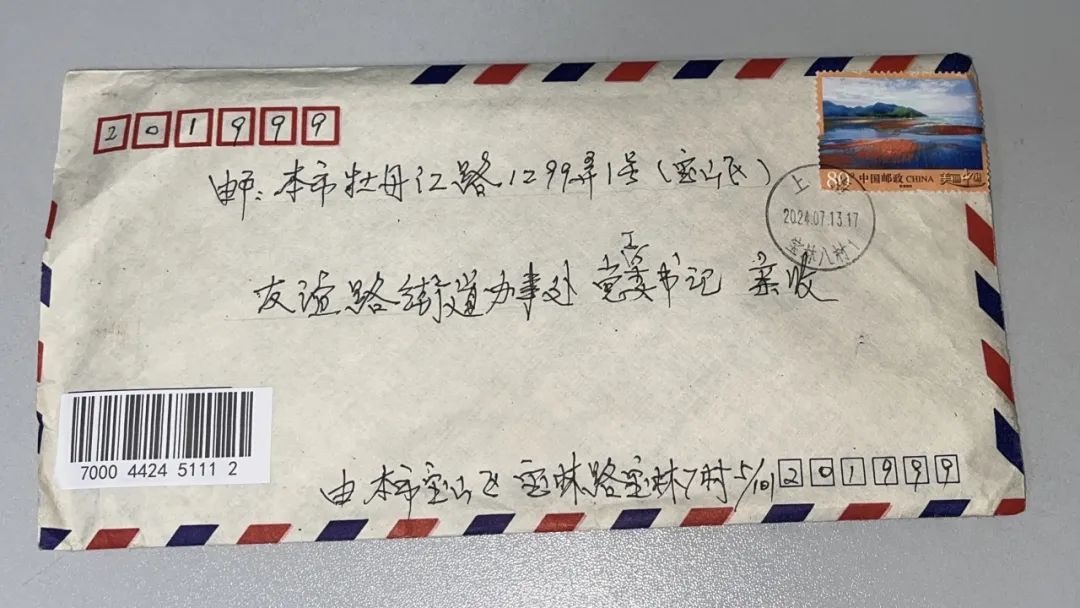 201999
邮：本市牡丹江路1299弄1号（宝山区）
80分 中国邮政 CHINA 美丽中国
上海
2024.07.13.17
宝林八村1
工
友谊路街道办事处 党委书记 亲收
7000 4424 5111 2
由本市宝山区宝林路宝林7村5/101 201999